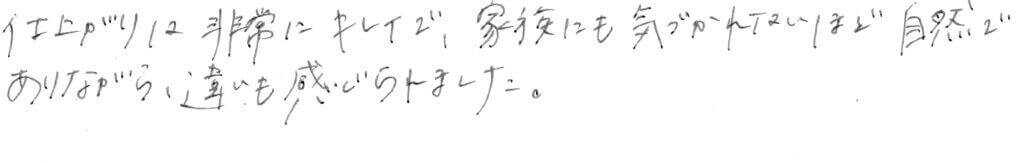 仕上がりは非常にキレイで、家族にも気づかれないほど自然で
ありながら、違いも感じられました。